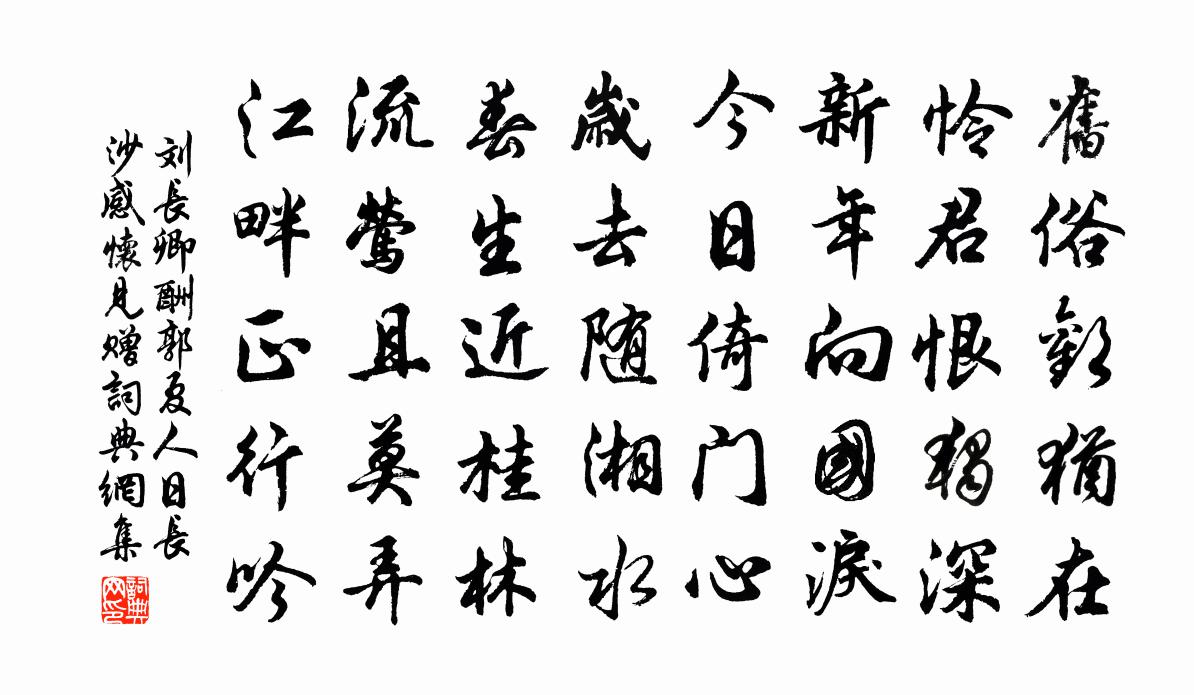 舊俗歡猶在
怜君恨獨深
新年向國淚
今日倚門心
歲去随湘水
春生近桂林
流鶯且莫弄
江畔正行吟
刘長卿酬郭夏人日長
沙感懷見贈詞典網集
詞典网印